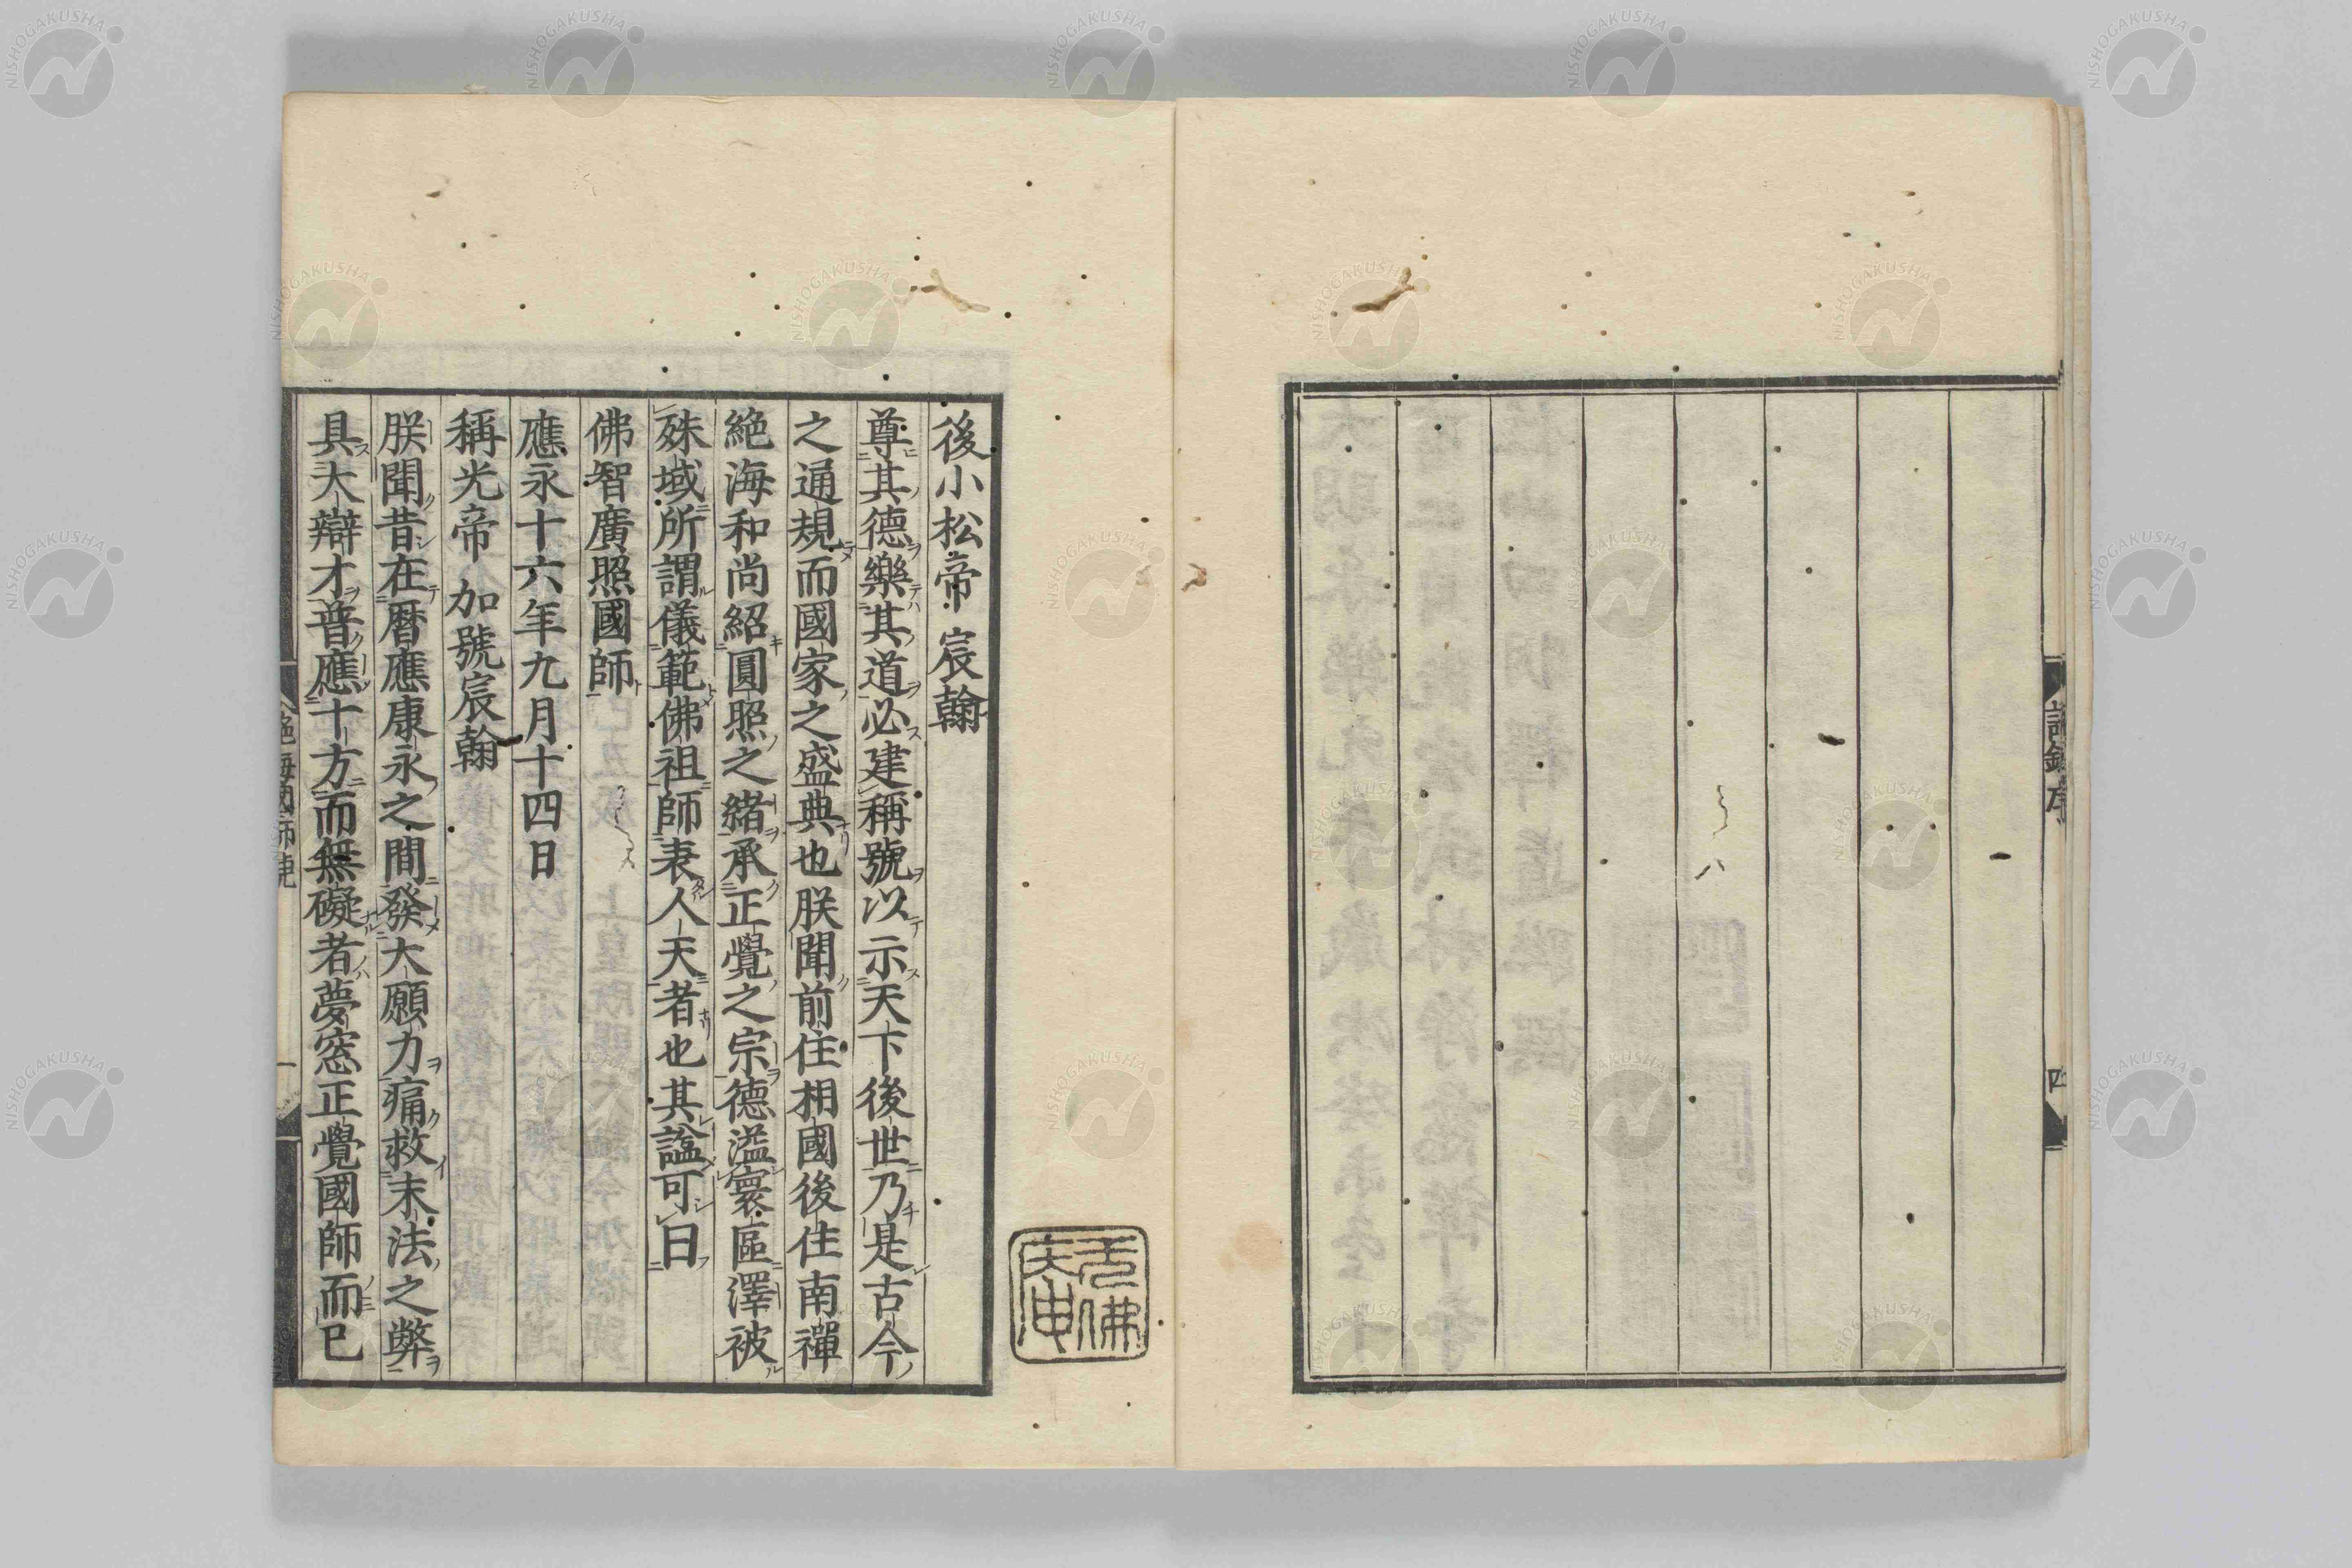 後小松帝宸翰
尊其德樂其道必建稱號以示天下後世乃是古今
之通規而國家之盛典也朕聞前住相國後住南禪
絶海和尚紹圓照之緒承正覺之宗德溢寰區澤被
殊域所謂儀範佛祖師表人天者也其諡可曰
佛智廣照國師
應永十六年九月十四日
稱光帝加號宸翰
朕聞昔在曆應康永之間發大願力痛救末法之弊
具大辯才普應十方而無礙者夢窓正覺國師而已
絶海國師號
一
四
NISHOGAKUSHA